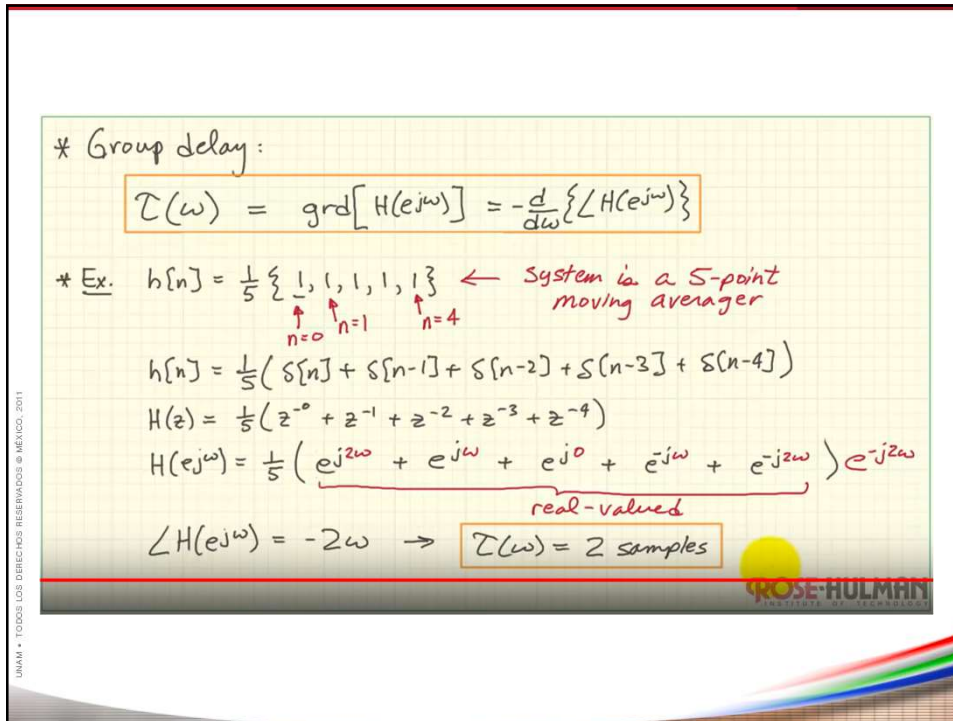 * Group delay:
τ(ω) = grd[H(e^jω)] = -d/dω{∠H(e^jω)}
* Ex. h[n] = 1/5 {1, 1, 1, 1, 1} ← system is a 5-point
moving averager
n=0 n=1 n=4
h[n] = 1/5(δ[n] + δ[n-1] + δ[n-2] + δ[n-3] + δ[n-4])
H(z) = 1/5(z^-0 + z^-1 + z^-2 + z^-3 + z^-4)
H(e^jω) = 1/5(e^j2ω + e^jω + e^j0 + e^-jω + e^-j2ω)e^-j2ω
real-valued
∠H(e^jω) = -2ω → τ(ω) = 2 samples
ROSE-HULMAN
INSTITUTE OF TECHNOLOGY
UNAM • TODOS LOS DERECHOS RESERVADOS © MÉXICO, 2011